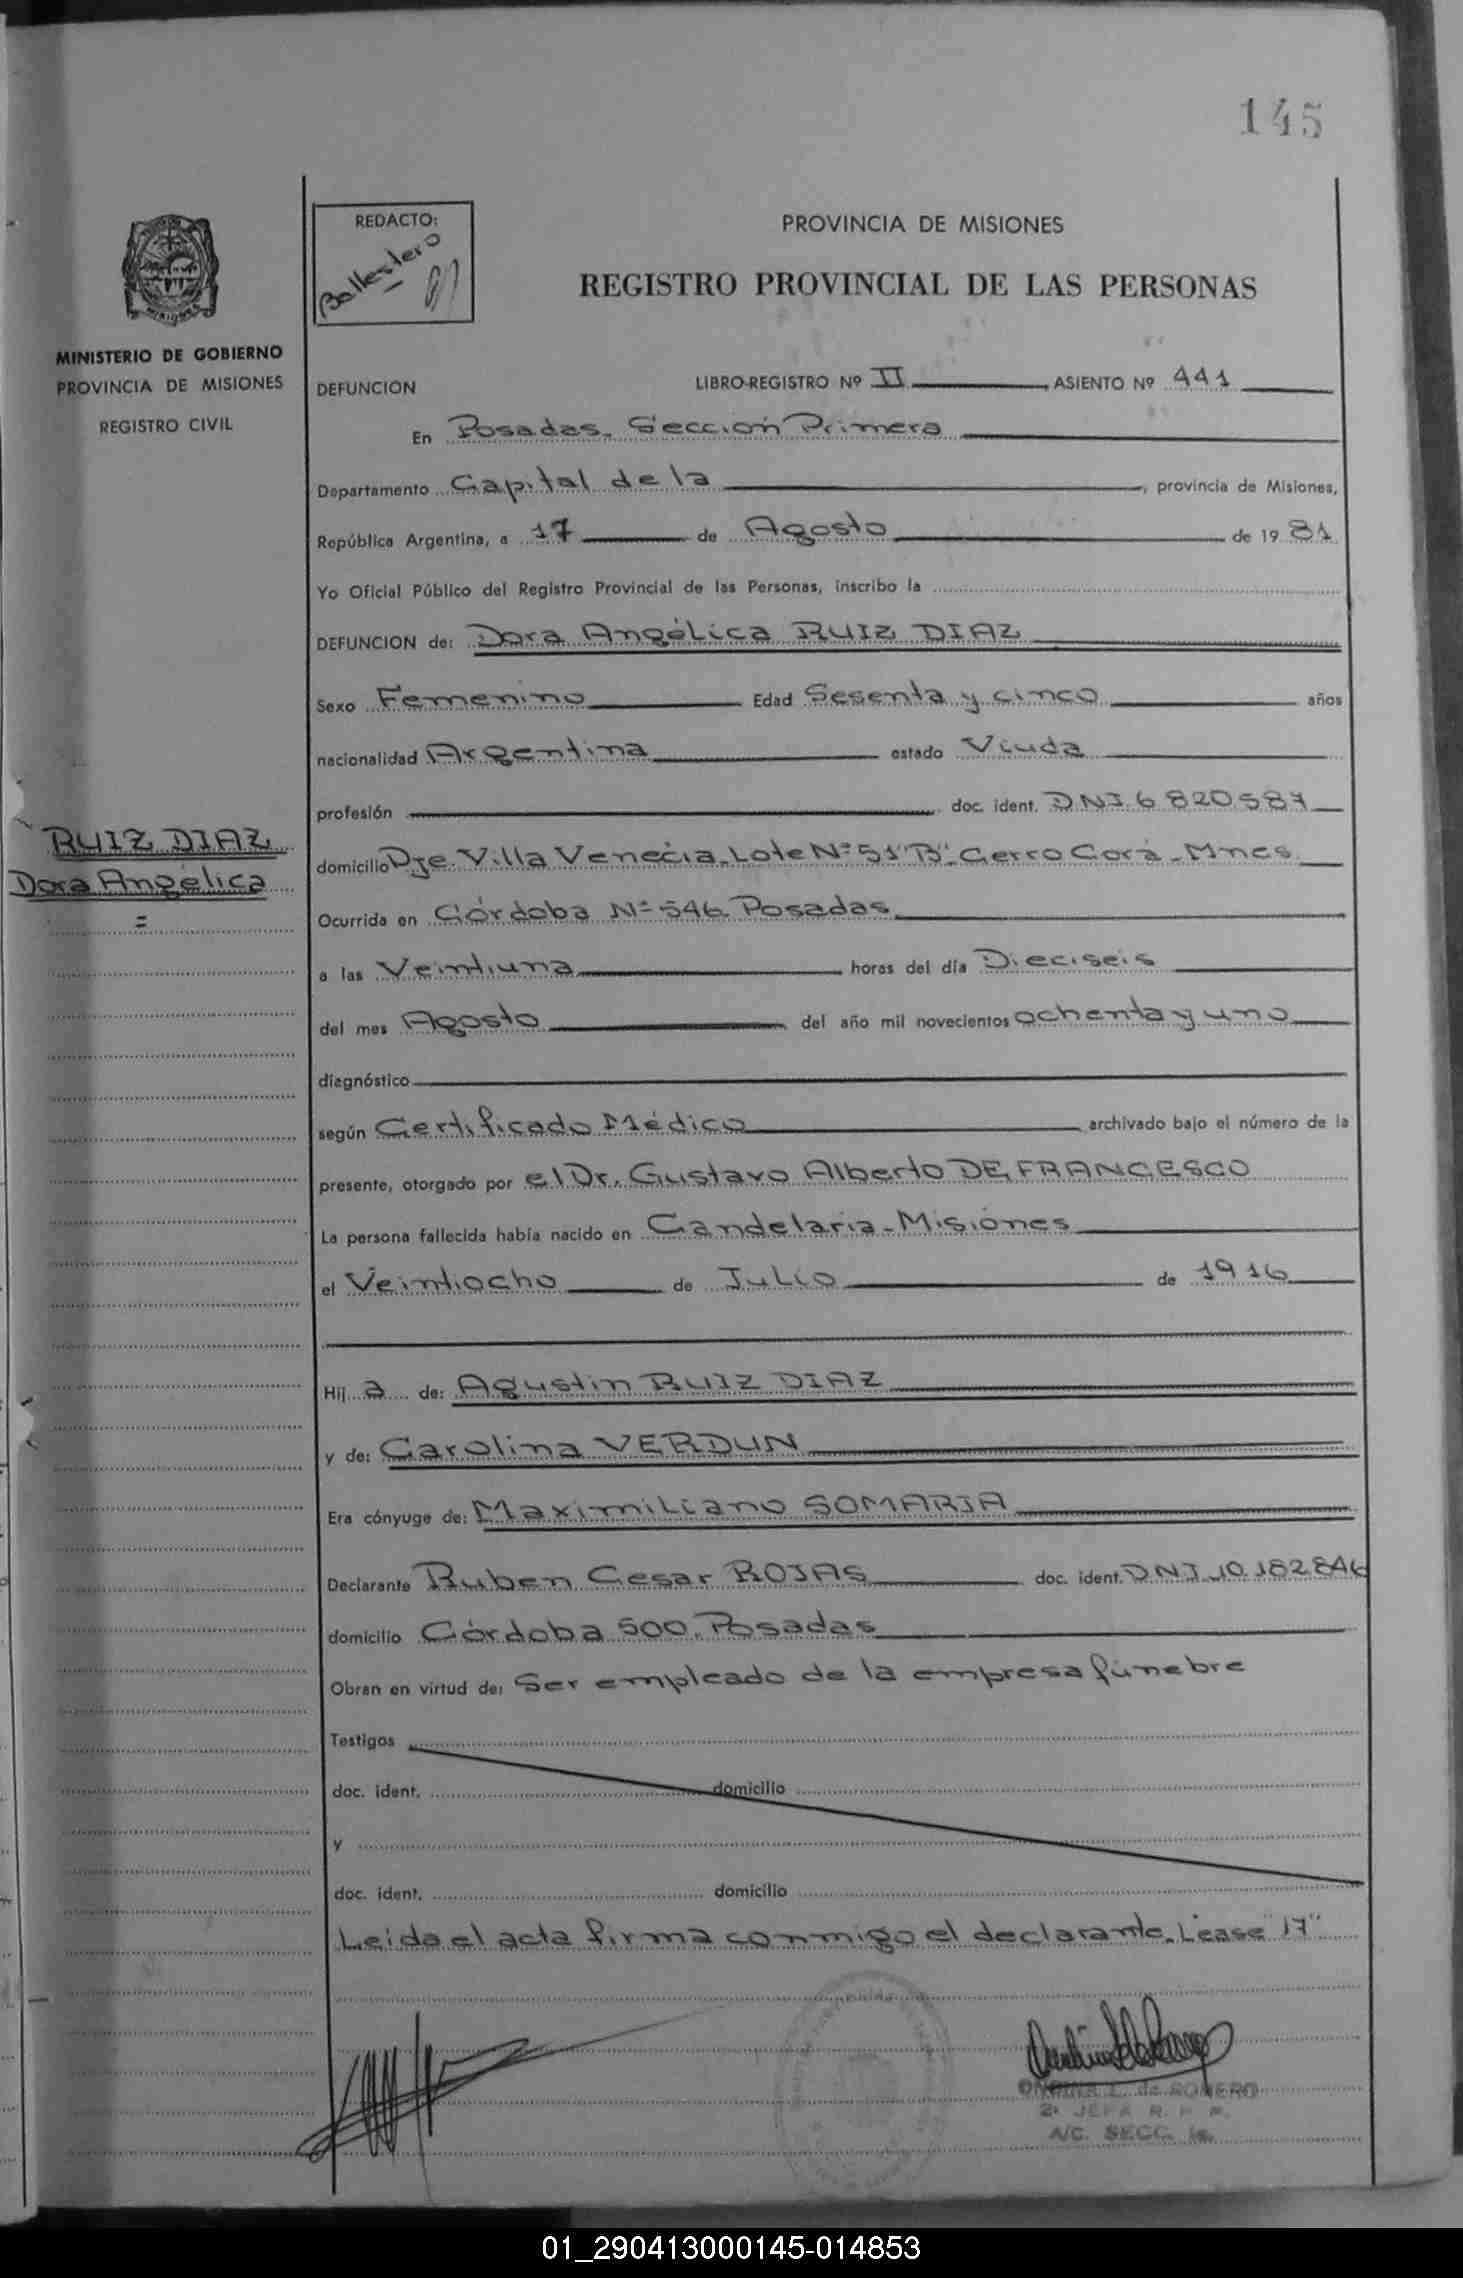 145
REDACTO:
Ballestero
PROVINCIA DE MISIONES
REGISTRO PROVINCIAL DE LAS PERSONAS
MISIONES
MINISTERIO DE GOBIERNO
PROVINCIA DE MISIONES
REGISTRO CIVIL
DEFUNCION LIBRO-REGISTRO Nº II ASIENTO Nº 441
En Posadas, Sección Primera
Departamento Capital de la, provincia de Misiones,
República Argentina, a 17 de Agosto de 1981
Yo Oficial Público del Registro Provincial de las Personas, inscribo la
DEFUNCION de: Dora Angélica RUIZ DIAZ
Sexo Femenino Edad Sesenta y cinco años
nacionalidad Argentina estado Viuda
profesión doc. ident. DNI 6.820.587
RUIZ DIAZ
Dora Angélica
=
domicilio Pje. Villa Venecia-Lote Nº 51 "B". Cerro Corá-Mnes.
Ocurrida en Córdoba Nº 546. Posadas
a las Veintiuna horas del día Dieciseis
del mes Agosto del año mil novecientos ochenta y uno
diagnóstico
según Certificado Médico archivado bajo el número de la
presente, otorgado por el Dr. Gustavo Alberto DE FRANCESCO
La persona fallecida había nacido en Candelaria-Misiones
el Veintiocho de Julio de 1916
Hij a de: Agustin RUIZ DIAZ
y de: Carolina VERDUN
Era cónyuge de: Maximiliano SOMARIA
Declarante Ruben Cesar ROJAS doc. ident. DNI 10.182.846
domicilio Córdoba 500. Posadas
Obran en virtud de: Ser empleado de la empresa fúnebre
Testigos
doc. ident. domicilio
y
doc. ident. domicilio
Leida el acta firma conmigo el declarante. Léase "17"
L. de ROMERO
2ª JEFA R. P. P.
A/C. SECC. 1a.
01_290413000145-014853